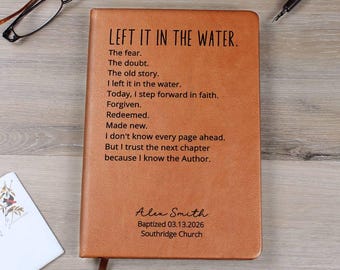 LEFT IT IN THE WATER.
The fear.
The doubt.
The old story.
I left it in the water.
Today, i step forward in faith.
Forgiven.
Redeemed.
Made new.
I don't know every page ahead.
But I trust the next chapter
because I know the Author.
Alex Smith
Baptized 03.13.2026
Southridge Church